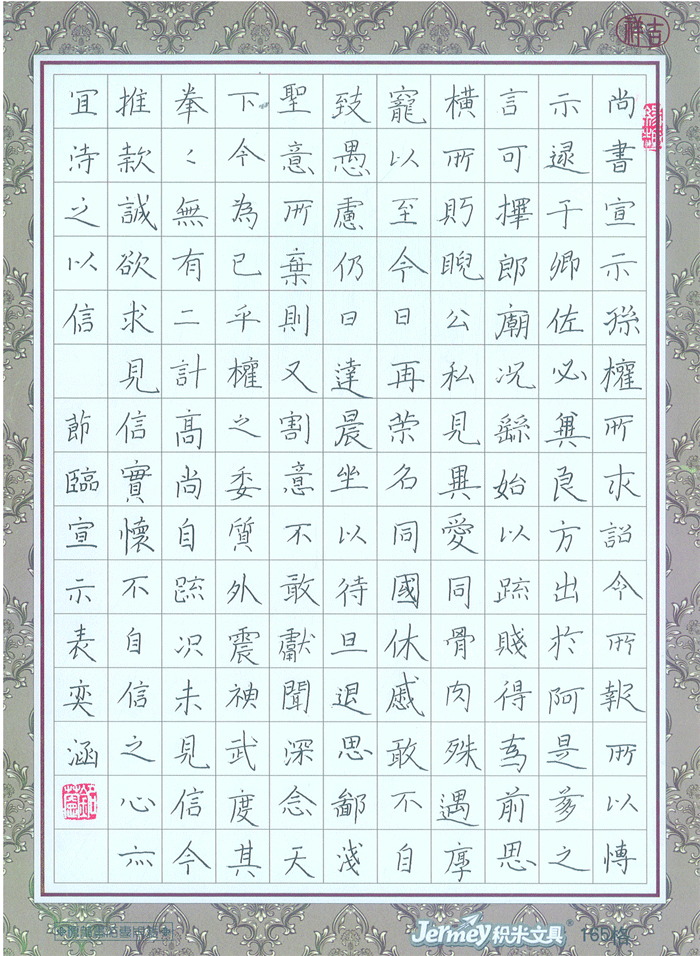 吉祥
尚書宣示孫權所求詔令所報所以博
示逮于卿佐必冀良方出於阿是芻之
言可擇郎廟況繇始以疏賤得為前思
橫所眄睨公私見異愛同骨肉殊遇厚
寵以至今日再榮名同國休慼敢不自
致愚慮仍日達晨坐以待旦退思鄙淺
聖意所棄則又割意不敢獻聞深念天
下今為已平權之委質外震神武度其
拳〻無有二計高尚自疏況未見信今
推款誠欲求見信實懷不自信之心亦
宜待之以信
節臨宣示表奕涵
Jermey积米文具® 165格